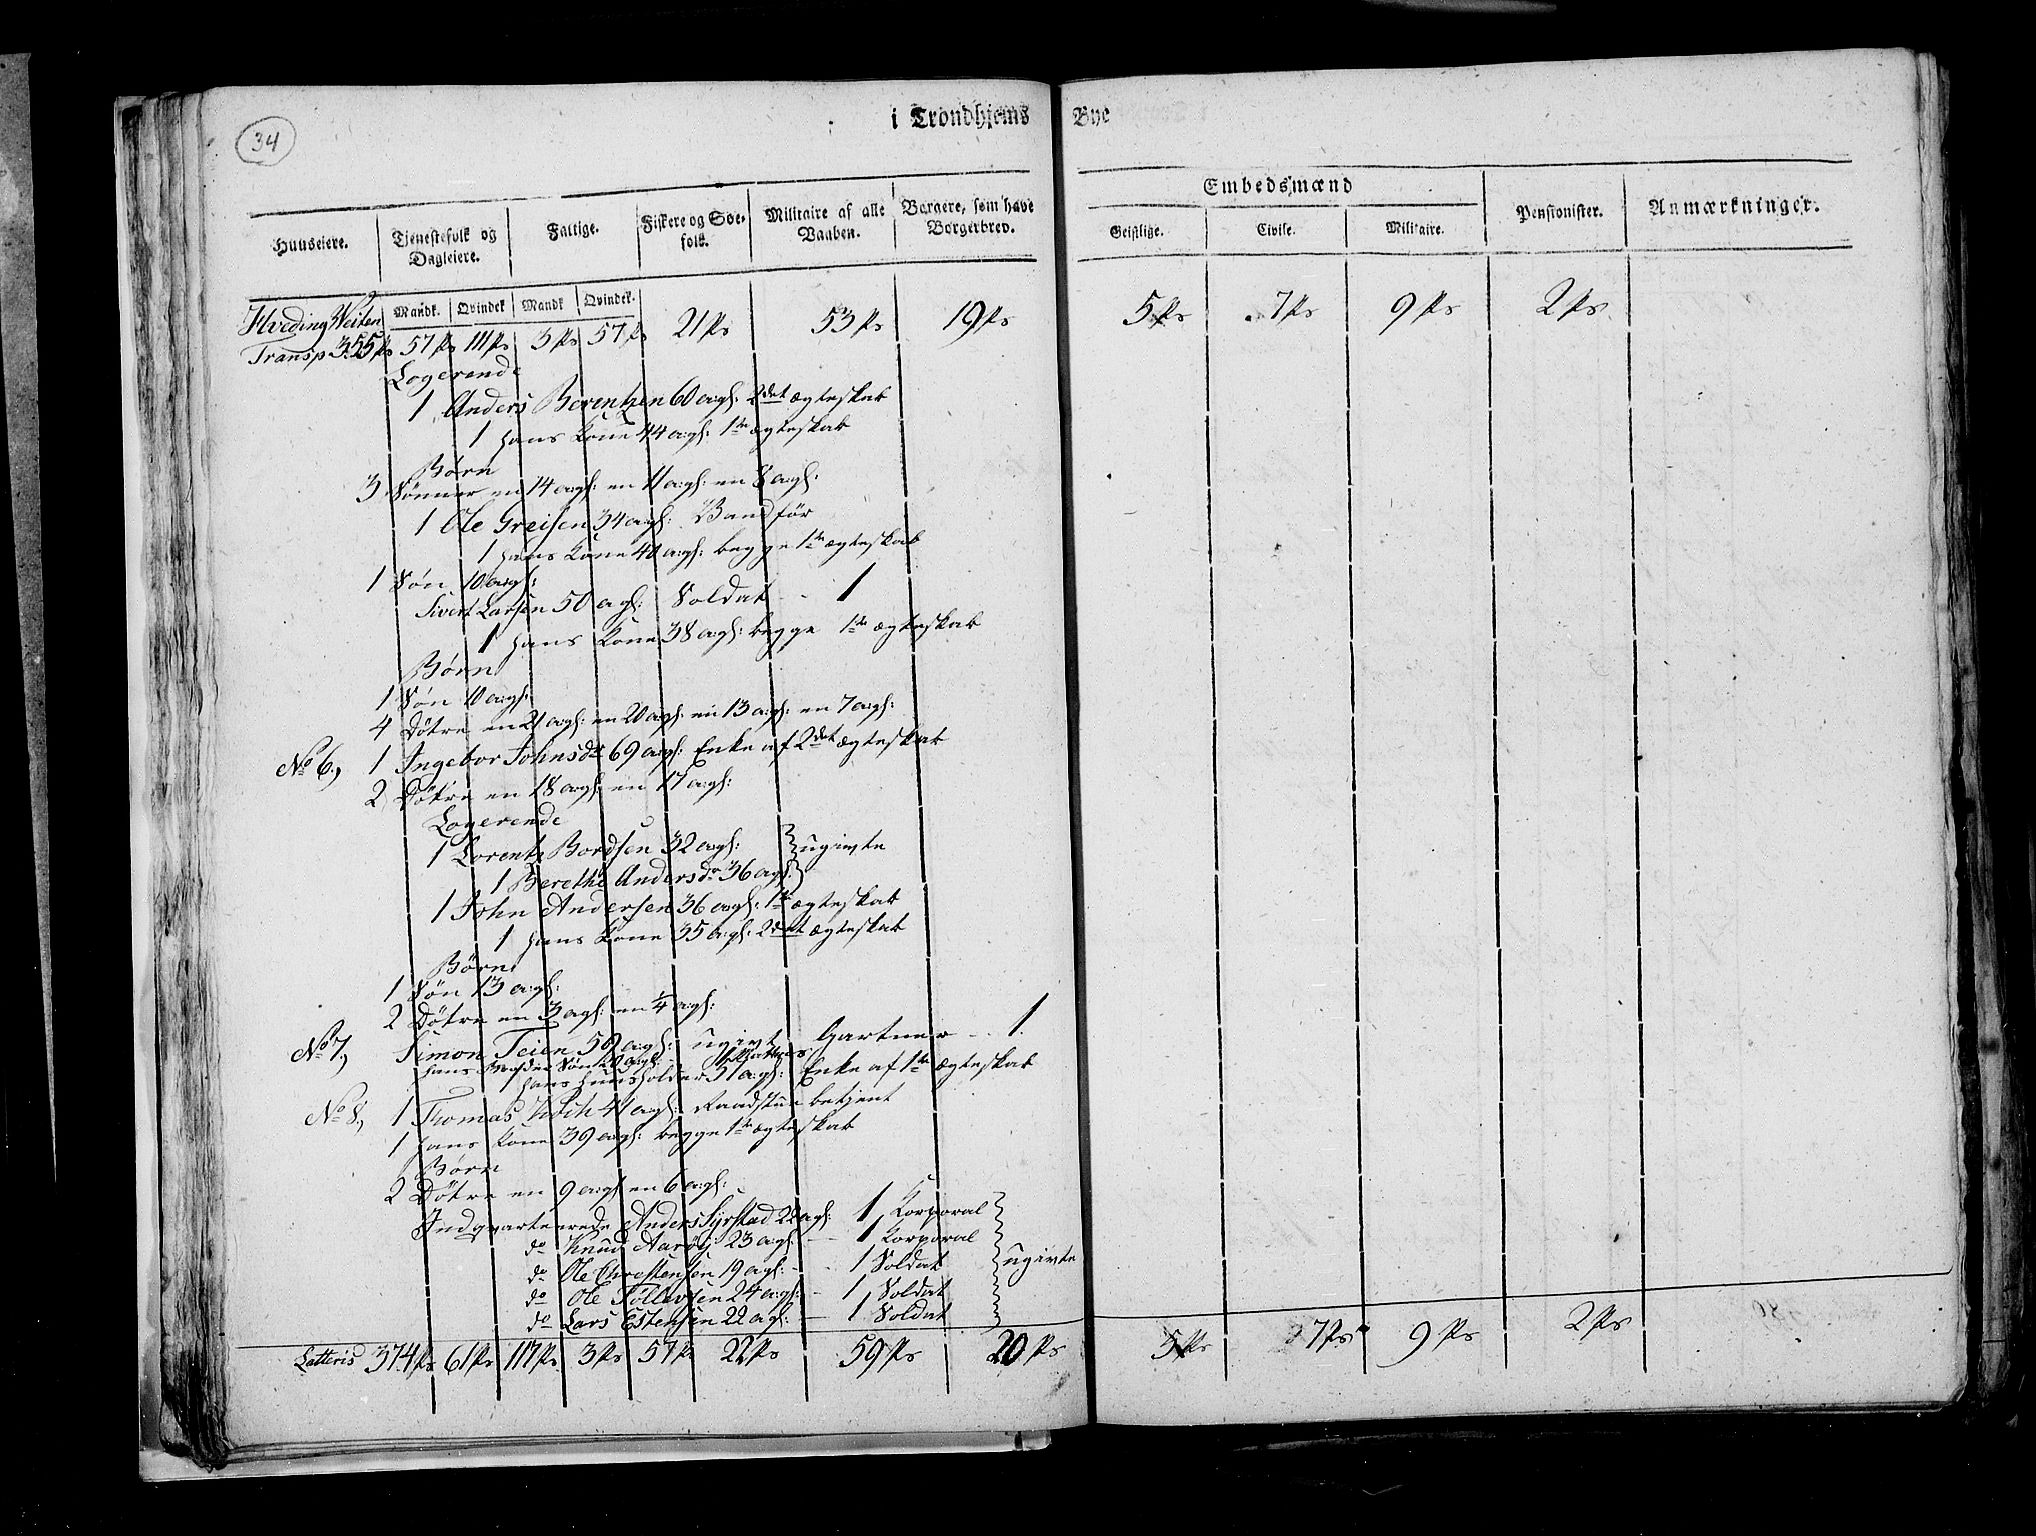 34
i Trondhjems Bye
Huuseiere.
Tjenestefolk og Dagleiere.
Fattige.
Fiskere og Søefolk.
Militaire af alle Vaaben.
Borgere, som have Borgerbrev.
Embedsmænd
Geistlige.
Civile.
Militaire.
Pensionister.
Anmærkninger.
Mandk. Qvindek Mandk Qvindek.
Hveding Veiten
Transp 355 Ps 57 Ps 111 Ps 3 Ps 57 Ps 21 Ps 53 Ps 19 Ps 5 Ps 7 Ps 9 Ps 2 Ps
Logerende
1 Anders Berentzen 60 agl: 2det ægteskab
1 hans Kone 44 agl: 1te ægteskab
Børn
3 Sønner en 14 agl: en 11 agl: en 8 agl:
1 Ole Greisen 34 agl: Vandför
1 hans Kone 40 agl: begge 1te ægteskab
1 Søn 10 agl:
Sivert Larsen 50 agl: Soldat - 1
1 hans Kone 38 agl: begge 1te ægteskab
Børn
1 Søn 10 agl:
4 Døtre en 21 agl: en 20 agl: en 13 agl: en 7 agl:
No 6, 1 Ingebor Johnsdr 69 agl: Enke af 2det ægteskab
2 Døtre en 18 agl: en 17 agl:
Logerende
1 Lorentz Bordsen 32 agl: ugivte
1 Berethe Andersdr 36 agl:
1 John Andersen 36 agl: 1te ægteskab
1 hans Kone 35 agl: 2det ægteskab
Børn
1 Søn 13 agl:
2 Døtre en 3 agl: en 1/4 agl:
No 7, Simon Teien 59 agl: ugivt Gartner - 1
hans Søn 20 agl:
hans Huusholder 51 agl: Enke af 1te ægteskab
No 8, 1 Thomas Koch 41 agl: Raadstue betjent
1 hans Kone 39 agl: begge 1te ægteskab
Børn
2 Døtre en 9 agl: en 6 agl:
Indqvarteerede Anders Syrstad 22 agl: 1 Korporal
do Knud Aarøy 23 agl: - 1 Korporal
do Ole Christensen 19 agl: - 1 Soldat ugivte
do Ole Tollevsen 24 agl: - 1 Soldat
do Lars Estensen 22 agl: - 1 Soldat
Latteris 374 Ps 61 Ps 117 Ps 3 Ps 57 Ps 22 Ps 59 Ps 20 Ps 5 Ps 7 Ps 9 Ps 2 Ps